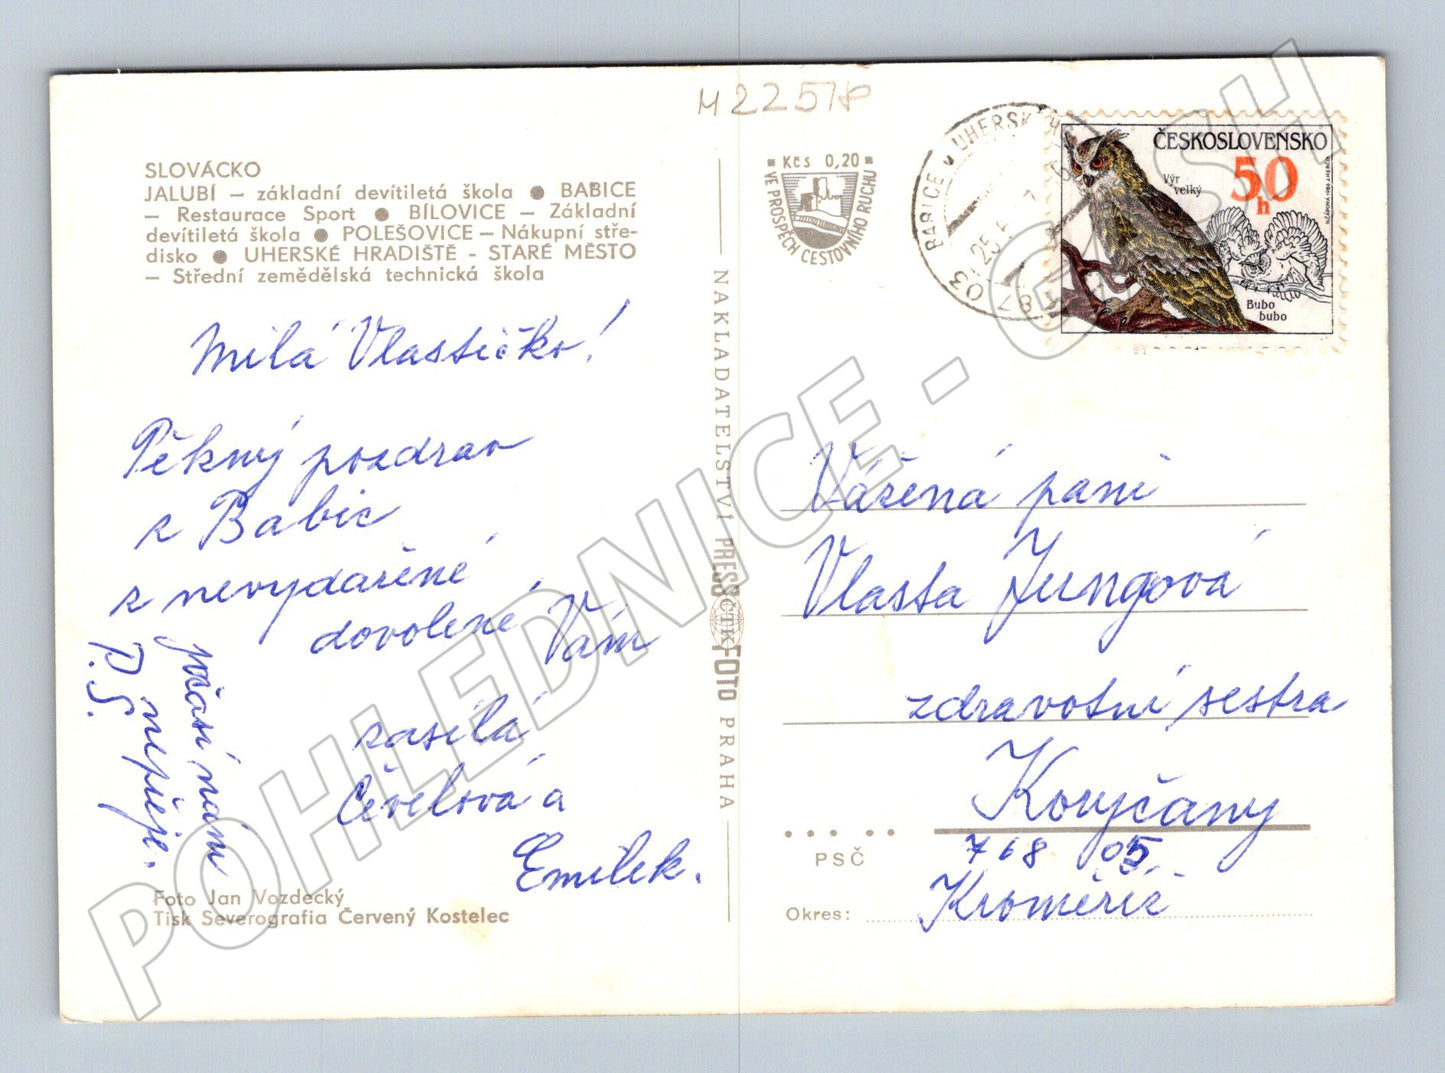 M 22578
SLOVÁCKO
JALUBÍ — základní devítiletá škola ● BABICE
— Restaurace Sport ● BÍLOVICE — Základní
devítiletá škola ● POLEŠOVICE — Nákupní stře-
disko ● UHERSKÉ HRADIŠTĚ - STARÉ MĚSTO
— Střední zemědělská technická škola
Milá Vlastičko!
Pěkný pozdrav
z Babic
z nevydařené
dovolené Vám
zasílá
Čevelová a
Emilek.
P.S.
počasí nám
nepřeje.
Foto Jan Vozdecký
Tisk Severografia Červený Kostelec
NAKLADATELSTVÍ PRESSFOTO PRAHA
ČTK
Kčs 0,20
VE PROSPĚCH CESTOVNÍHO RUCHU
687 03 BABICE u UHERSK
25.
ČESKOSLOVENSKO
50
h
Výr
velký
Bubo
bubo
Vážená paní
Vlasta Jungová
zdravotní sestra
Koryčany
PSČ
768 05
Okres: Kroměříž
POHLEDNICE - GMSH